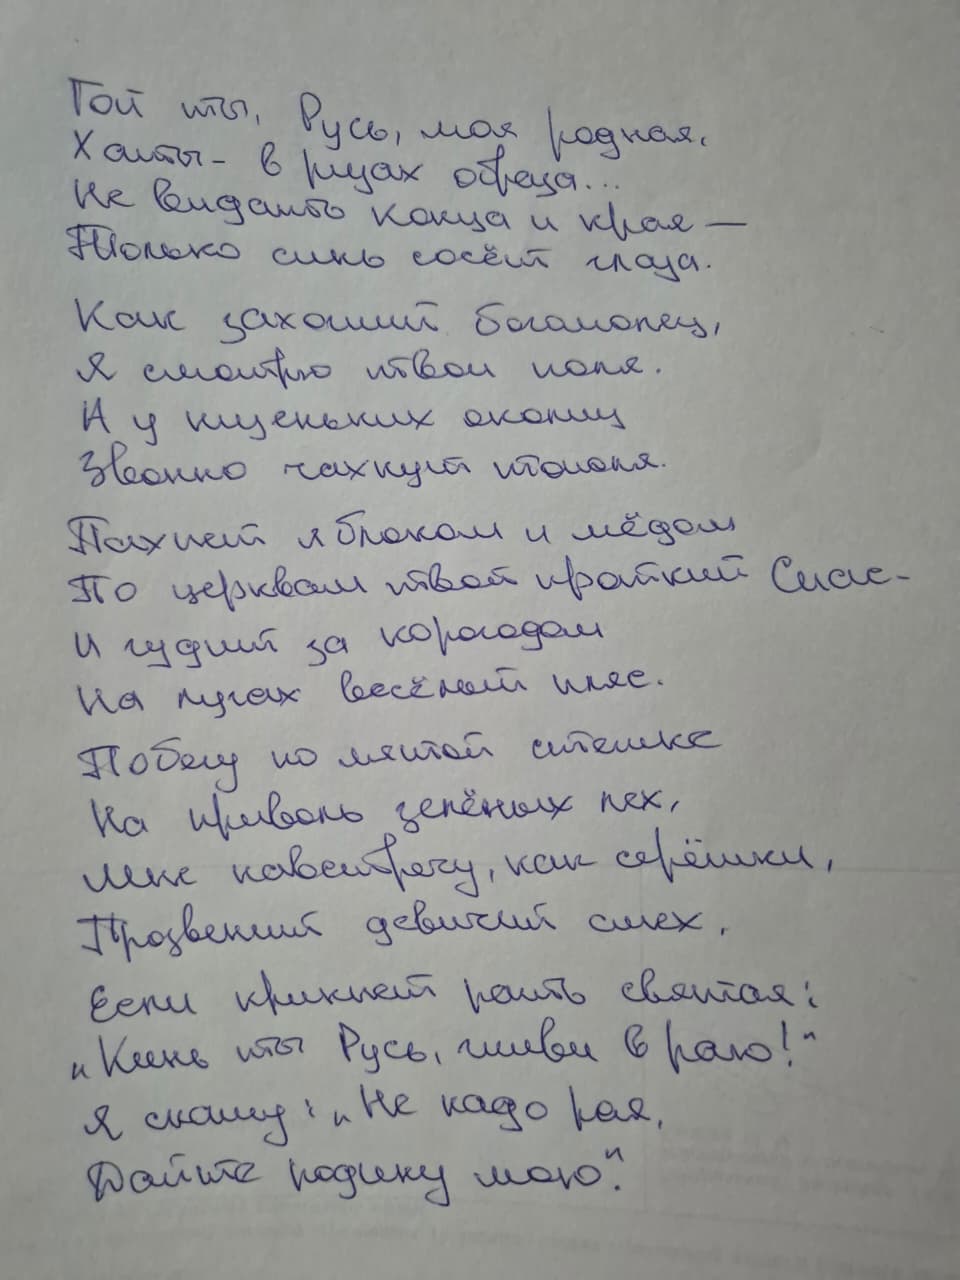 Гой ты, Русь, моя родная,
Хаты - в ризах образа...
Не видать конца и края —
Только синь сосёт глаза.
Как захожий богомолец,
Я смотрю твои поля.
А у низеньких околиц
Звонко чахнут тополя.
Пахнет яблоком и мёдом
По церквам твой кроткий Спас -
И гудит за корогодом
На лугах весёлый пляс.
Побегу по мятой стёжке
На приволь зелёных лех,
Мне навстречу, как серёжки,
Прозвенит девичий смех.
Если крикнет рать святая:
„Кинь ты Русь, живи в раю!"
Я скажу: „Не надо рая,
Дайте родину мою".